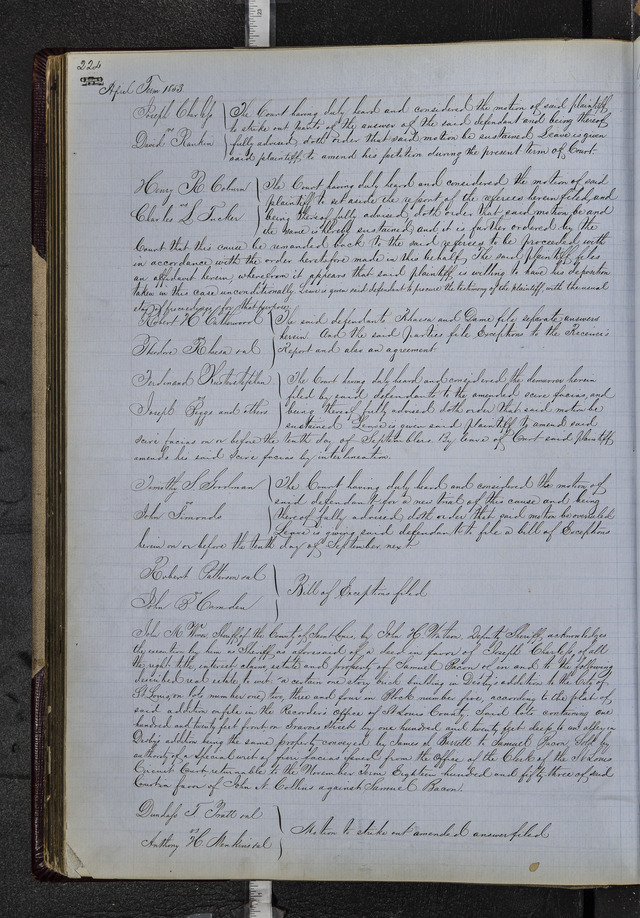 224
April Term 1863
Joseph Charless
vs
David Rankin
The Court having duly heard and considered the motion of said plaintiff
to strike out parts of the answer of the said defendant and being thereof
fully advised doth order that said motion be sustained Leave is given
said plaintiff to amend his petition during the present term of Court
Henry R Coburn
vs
Charles L Tucker
The Court having duly heard and considered the motion of said
plaintiff to set aside the report of the referees herein filed, and
being thereof fully advised, doth order that said motion be and
the same is hereby sustained and it is further ordered by the
Court that this cause be remanded back to the said referees to be proceeded with
in accordance with the order heretofore made in this behalf, The said plaintiff files
an affidavit herein wherefrom it appears that said plaintiff is willing to have his deposition
taken in this case unconditionally. Leave is given said defendant to procure the testimony of the plaintiff, with the usual
stay of proceedings for that purpose
Robert H
Theodore et al
The said defendants and Dame file separate answers
herein And the said parties file Exceptions to the Receiver's
Report and also an agreement
Ferdinand
vs
Joseph Biggs and others
The Court having duly heard and considered the demurrer herein
filed by said defendants to the amended scire facias, and
being thereof fully advised doth order that said motion be
sustained Leave is given said plaintiff to amend said
scire facias on or before the tenth day of September By leave of Court said Plaintiff
amends his said Scire facias by interlineation
Timothy S
vs
John Simonds
The Court having duly heard and considered the motion of
said defendant for a new trial of this cause and being
thereof fully advised doth order that said motion be overruled
Leave is giving said defendant to file a bill of Exceptions
herein on or before the tenth day of September next
Robert Patterson et al
vs
John B Camden
Bill of Exceptions filed
John M Sheriff of the County of Saint Louis by John H Watson Deputy Sheriff, acknowledges
the execution by him as Sheriff, as aforesaid of a deed in favor of Joseph Charless, of all
the right title, interest claim estate and property of Samuel Bacon of in and to the following
described real estate to wit "a certain one story brick building in addition to the City of
St Louis on lots number one, two, three and four in Block number five, according to the plat of
said addition on file in the Recorder's Office of St Louis County Said lots containing one
hundred and twenty feet front on Gravois Street by one hundred and twenty feet deep to an alley in
addition being the same property conveyed by James S Barrett to Samuel Bacon, Sold by
authority of a Special writ of fieri facias issued from the Office of the Clerk of the St Louis
Circuit Court returnable to the November Term Eighteen hundred and fifty three of said
Court in favor of John N Collins against Samuel Bacon.
T Pratt et al
vs
Anthony H et al
Motion to strike out amended answer filed